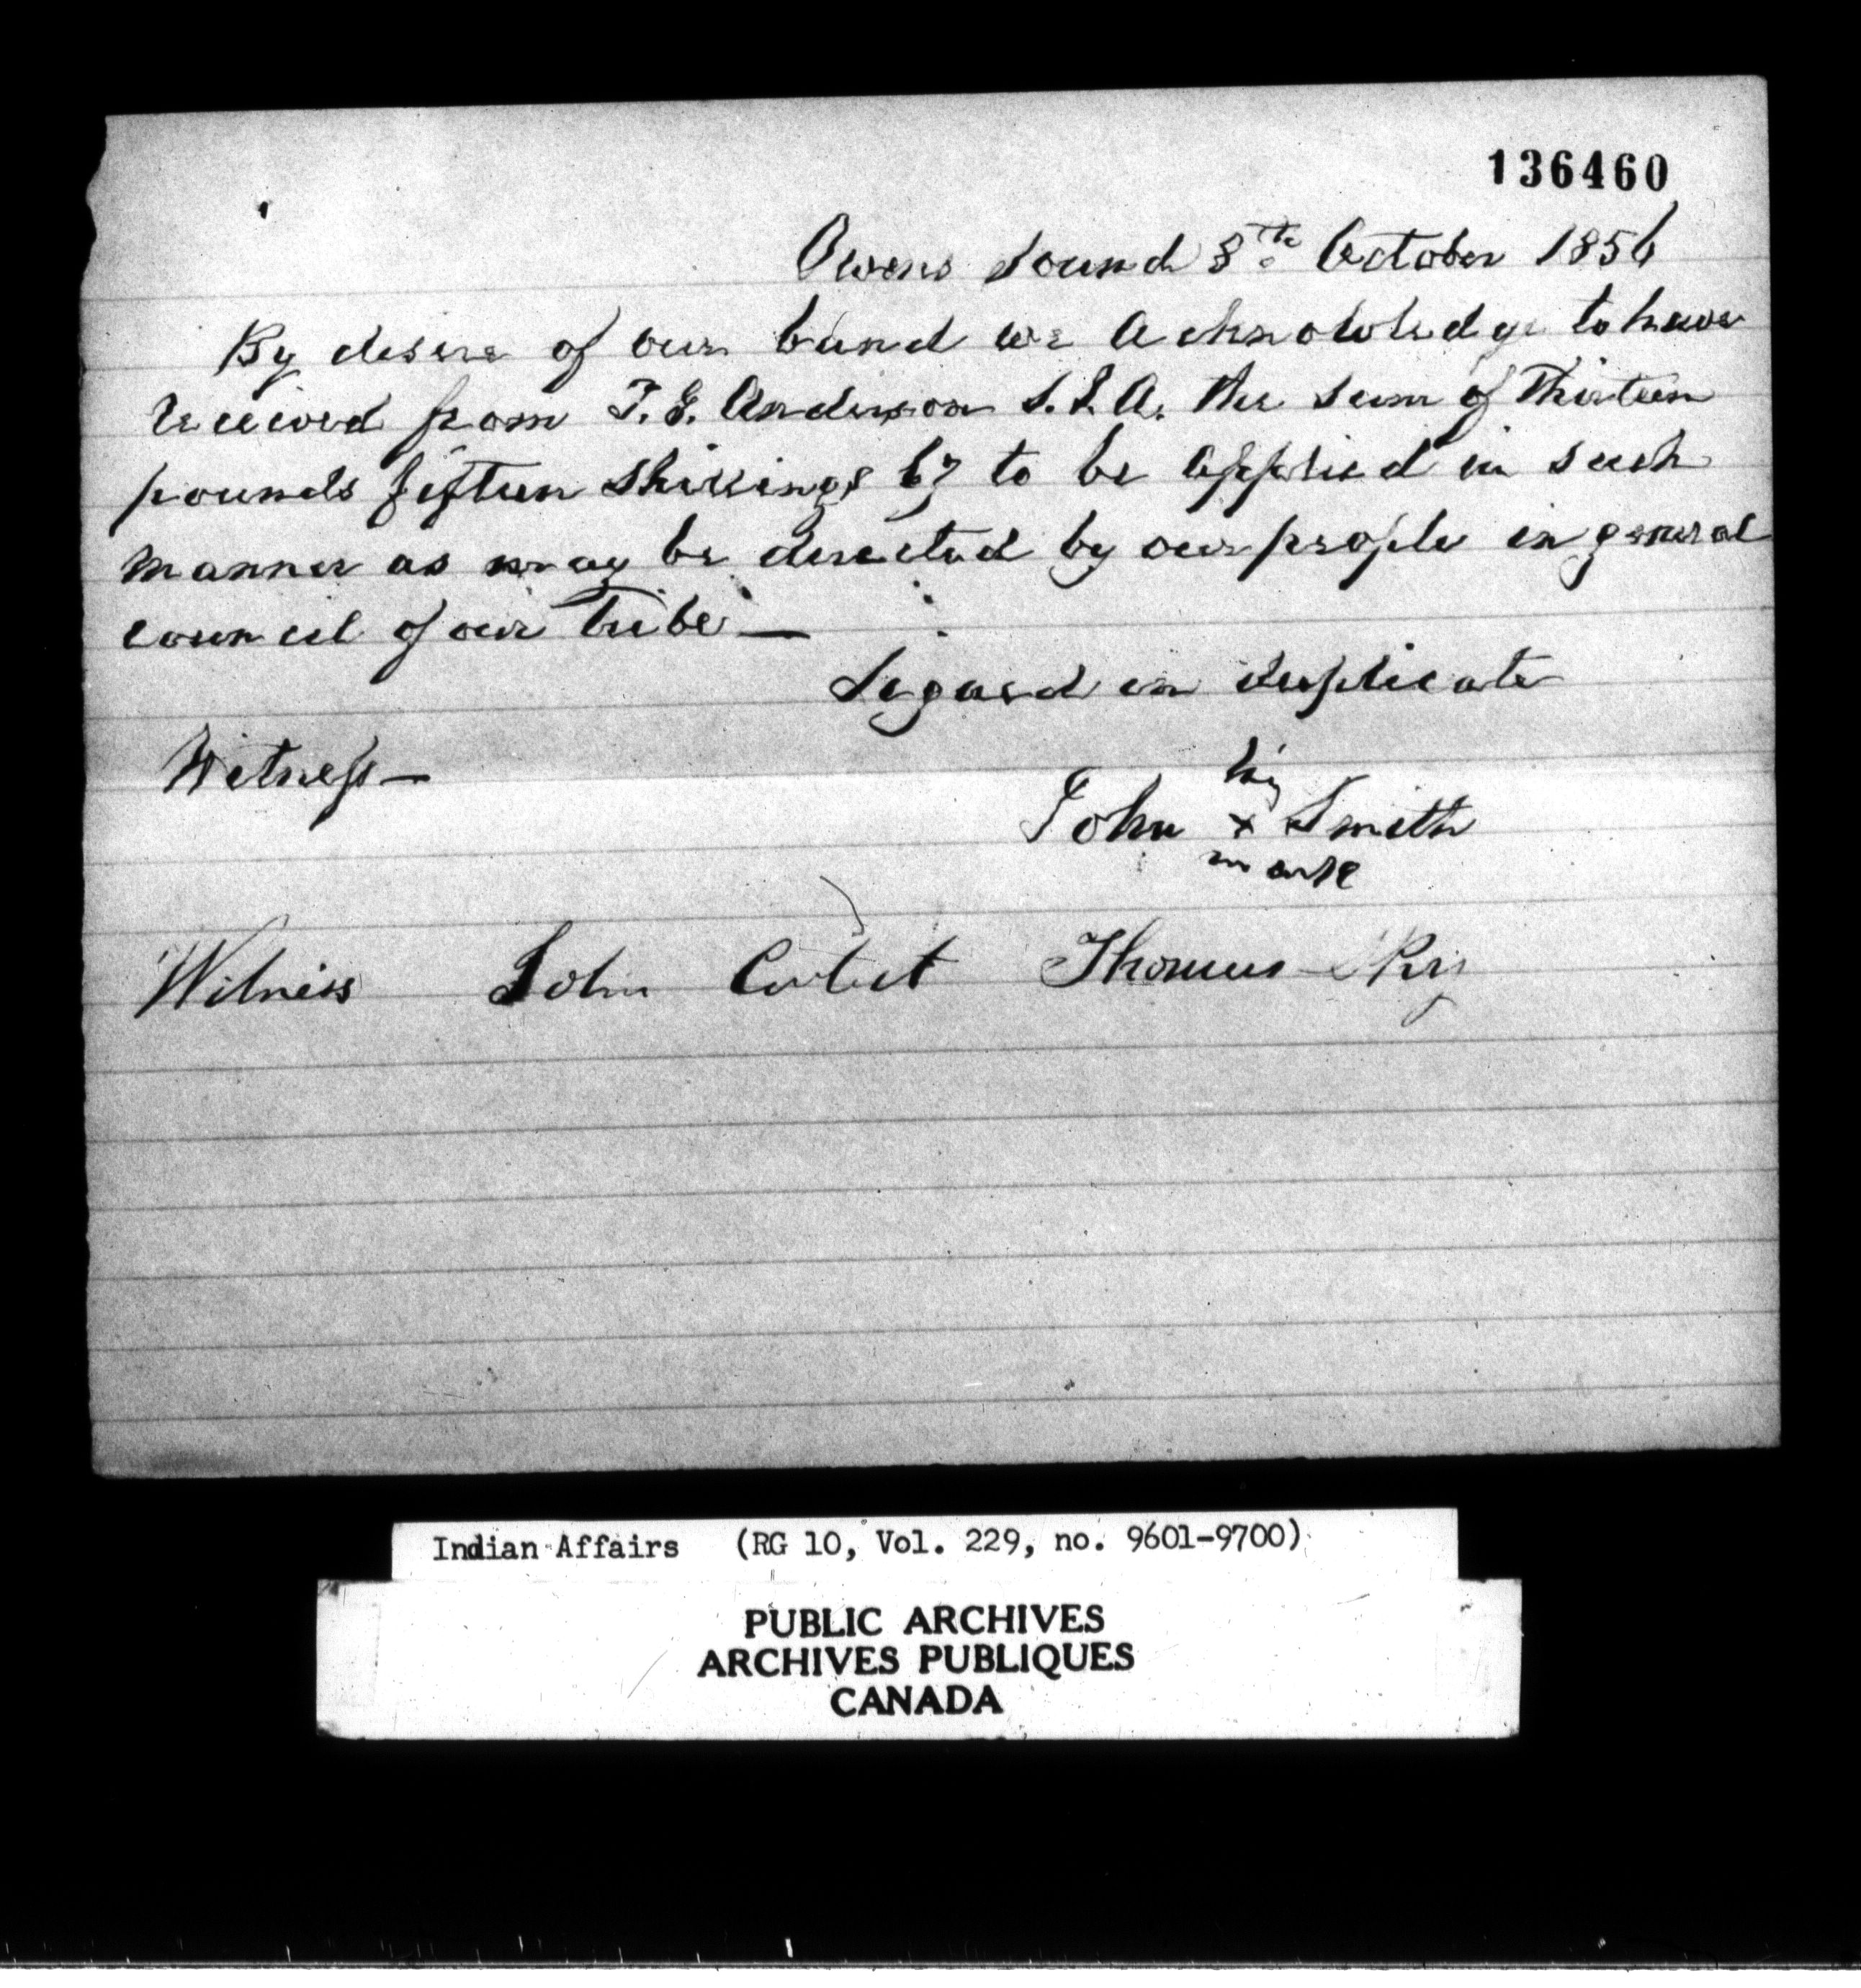 136460
Owens Sound 8th October 1856
By desire of our band we Acknowledge to have
received from T. G. Anderson S. I. A. the sum of Thirteen
pounds fifteen Shillings to be applied in such
manner as may be directed by our people in general
council of our Tribe —
Signed in duplicate
Witness —
his
John x Smith
mark
Witness John Thomas
Indian Affairs (RG 10, Vol. 229, no. 9601-9700)
PUBLIC ARCHIVES
ARCHIVES PUBLIQUES
CANADA